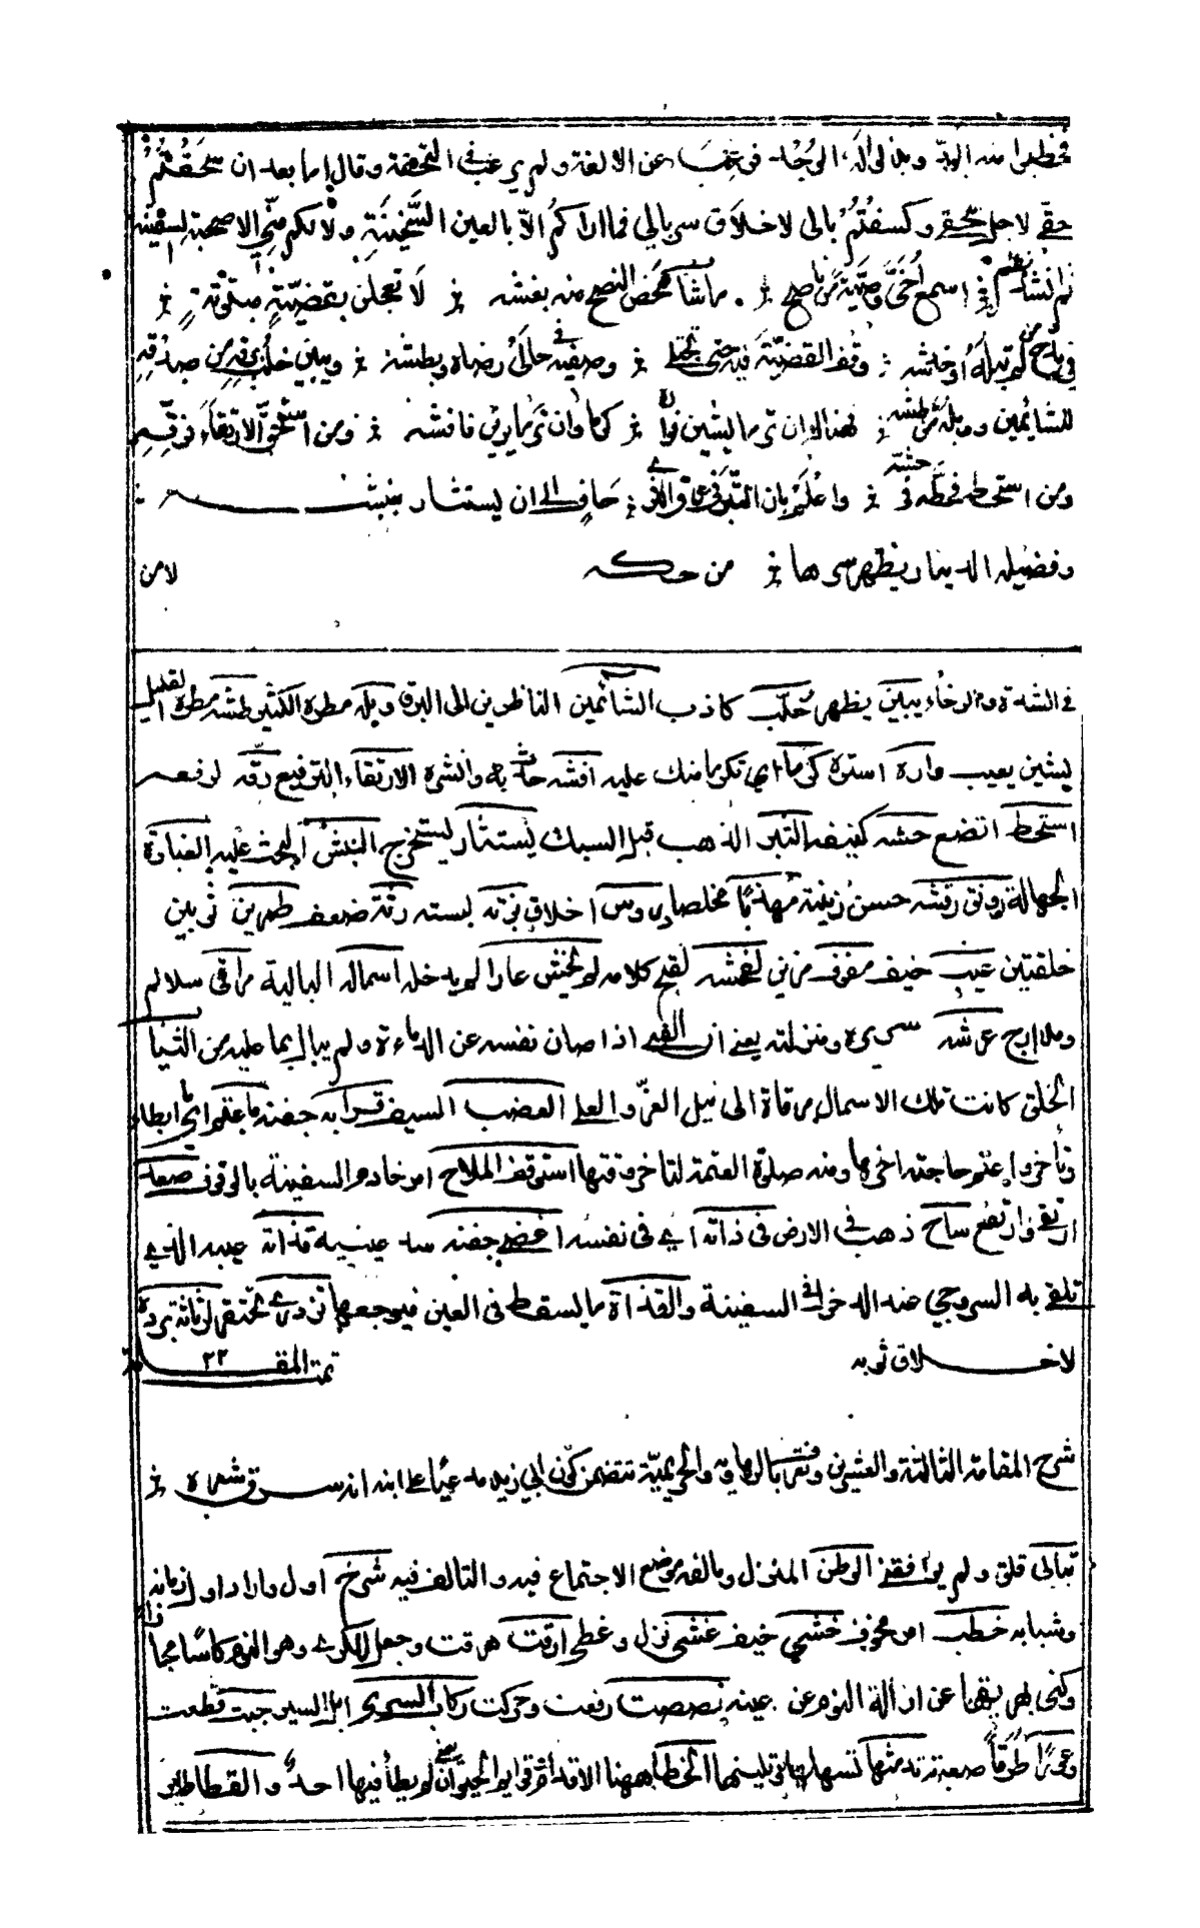 فخطبوا منه الود وبذلوا له الوجد فرغب عن الالفة ولم يرغب في التحفة وقال اما بعد ان سحقتم
حقي لاجل سحقي وكسفتم بالي لاخلاق سربالي فما اراكم الا بالعين السخينة ولا لكم مني الا صحبة السفينة
ثم انشد اسمع أخي وصية من ناصح ما شاب محض النصح منه بغشه لا تعجلن بقضية مبتوتة
في مدح من لم تبله او خدشه وقف القضية فيه حتى تجتلي وصفيه في حالي رضاه وبطشه ويبين خلب برقه من صدقه
للشائمين ووبله من طشه فهناك ان تر ما يشين فواره كرما وان تر ما يزين فافشه ومن استحق الارتقاء فرقه
ومن استحط فحطه في حشه واعلم بان التبر في عرق الثرى خاف الى ان يستثار بنبشه
وفضيلة الدينار يظهر سرها من حكه لا من
في الشدة والرخاء يبين يظهر خلب كاذب الشائمين الناظرين الى البرق وبله مطره الكثير طشه مطره القليل
يشين يعيب واره استره كرما اي تكرما منك عليه افشه حدث به وانشره الارتقاء الترفيع رقه ارفعه
استحط اتضع حشه كنيفه التبر الذهب قبل السبك يستثار يستخرج النبش البحث عليه الغباوة
الجهالة رونق رقشه حسن زينة مهذبا مخلصا دروس اخلاق بزته لبسته رثة ضعف طمرين ثوبين
خلقتين عيب خيف مفوف مزين لفحشه لقبح كلامه لم يخش عارا لم يدخله اسماله البالية مراقي سلالم
ومدارج عرشه سريره ومنزلته يعني ان الفتى اذا صان نفسه عن الدناءة ولم يبال بما عليه من الثياب
الخلق كانت تلك الاسمال مرقاة الى نيل العز والعلى العضب السيف قرابه جفنه ما عتم اي ما ابطاء
وتأخر واعتم حاجته اخرها ومنه صلوة العتمة لتاخر وقتها استوقف الملاح امر خادم السفينة بالوقوف صعد
ارتقى وارتفع ساح ذهب في الارض في ذاته اي في نفسه اغضى جفنه سد عينيه قذاته عيبه الذي
تلقى به السروجي عند الدخول في السفينة والقذاة ما يسقط في العين فيوجعها نزدري نحتقر لرثاثة برده
لاخلاق ثوبه تمت المقامة ٢٢
شرح المقامة الثالثة والعشرين وتعرف بالوجامية والحريمية تتضمن كون ابي زيد مدعيا على ابنه انه سرق شعره
نبا بي قلق ولم يوافقني الوطن المنزل ومالفه موضع الاجتماع فيه والتالف فيه شرخ اول واراد اول زمانه
وشبابه خطب امر مخوف خشي خيف غشي نزل وغطى ارقت هرقت وجعل للكرى وهو النوم كاسا مجازا
وكنى بهرقها عن ازالة النوم عن عينه نصصت رفعت وحركت ركاب السرى ابل السير جبت قطعت
وعورا طرقا صعبة تدمثها تسهلها وتلينها الخطا ههنا الاقدام اي الحيوان لم يطأ فيها احد والقطا طائر